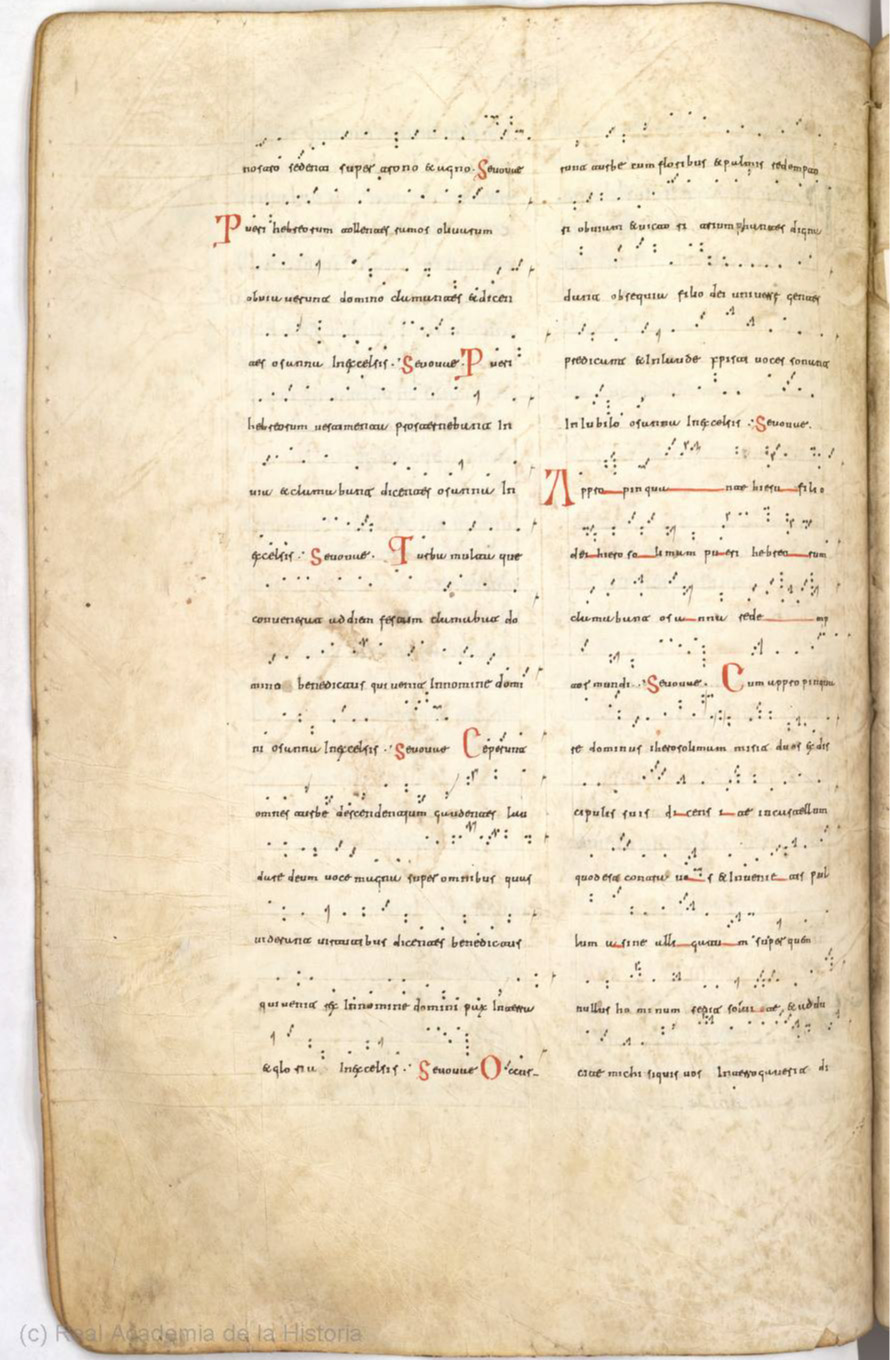 nostro sedenti super trono & agno. Seuouae
Pueri hebreorum tollentes ramos olivarum
obviaverunt domino clamantes & dicen
tes osanna Inexcelsis. Seuouae. Pueri
hebreorum vestimenta prosternebant In
via & clamabant dicentes osanna In
excelsis. Seuouae. Turba multa que
convenerat ad diem festum clamabat do
mino benedictus qui venit Innomine domi
ni osanna Inexcelsis. Seuouae Ceperunt
omnes turbe descendentium gaudentes lau
dare deum voce magna super omnibus quas
viderunt virtutibus dicentes benedictus
qui venit rex Innomine domini pax Interra
& gloria Inexcelsis. Seuouae Occur-
runt turbe cum floribus & palmis redempto
ri obviam & victo ri triumphantes digna
dant obsequia filio dei gentes
predicant & Inlaude xpisti voces sonant
In Iubilo osanna Inexcelsis. Seuouae.
Appro pin qua nte hiesu filio
dei hiero so limam pueri hebreo rum
clamabant osa nna rede mp
tor mundi. Seuouae. Cum appropinqua
re dominus iherosolimam misit duos ex dis
cipulis suis di cens i te incastellum
quodest contra vo s & Invenie tis pul
lum a sine alli gatu m super quem
nullus ho minum sedit solvi te & addu
cite michi siquis vos Interrogaverit di
(c) Real Academia de la Historia